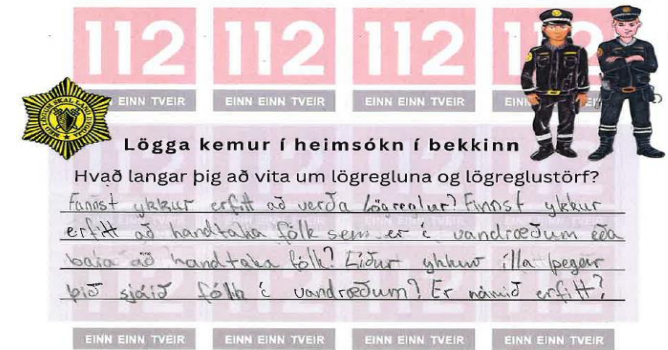 112 112 112 112
EINN TVEIR EINN EINN TVEIR EINN EINN TVEIR EINN
Lögga kemur í heimsókn í bekkinn
Hvað langar þig að vita um lögregluna og lögreglustörf?
Fannst ykkur erfitt að verða Lögreglur? Finnst ykkur
erfitt að handtaka fólk sem er í vandræðum eða
bara að handtaka fólk? Líður ykkur illa þegar
þið sjáið fólk í vandræðum? Er námið erfitt?
EINN EINN TVEIR EINN EINN TVEIR EINN EINN TVEIR EINN EINN TVEIR